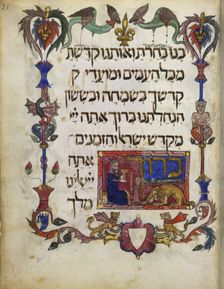 כי בנו בחרת ואותנו קדשת
מכל העמים ומועדי ק
קדשך בשמחה ובששון
הנחלתנו ברוך אתה יי
מקדש ישראל והזמנים
ברוך
אתה
יי אלהינו
מלך